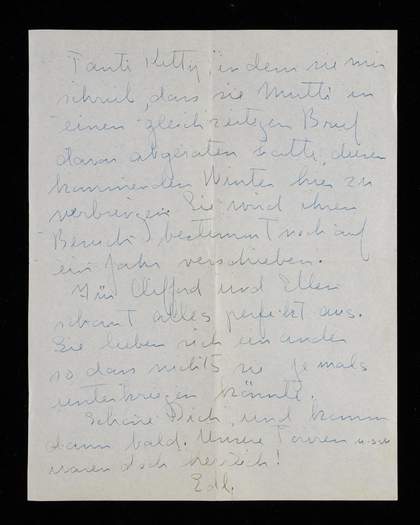 Tante Kitty, in dem sie mir
schrieb, dass sie Mutti in
einen gleichzeitigen Brief
davon abgeraten hatte, diesen
kommenden Winter hier zu
verbringen. Sie wird ihren
Besuch bestimmt noch auf
ein Jahr verschieben.
Für Clifford und Ellen
schaut alles perfekt aus.
Sie lieben sich einander
so dass nichts sie jemals
unterkriegen könnte.
Schone Dich, und komm
dann bald. Unsere Touren u.s.w.
waren doch herrlich!
Edl.